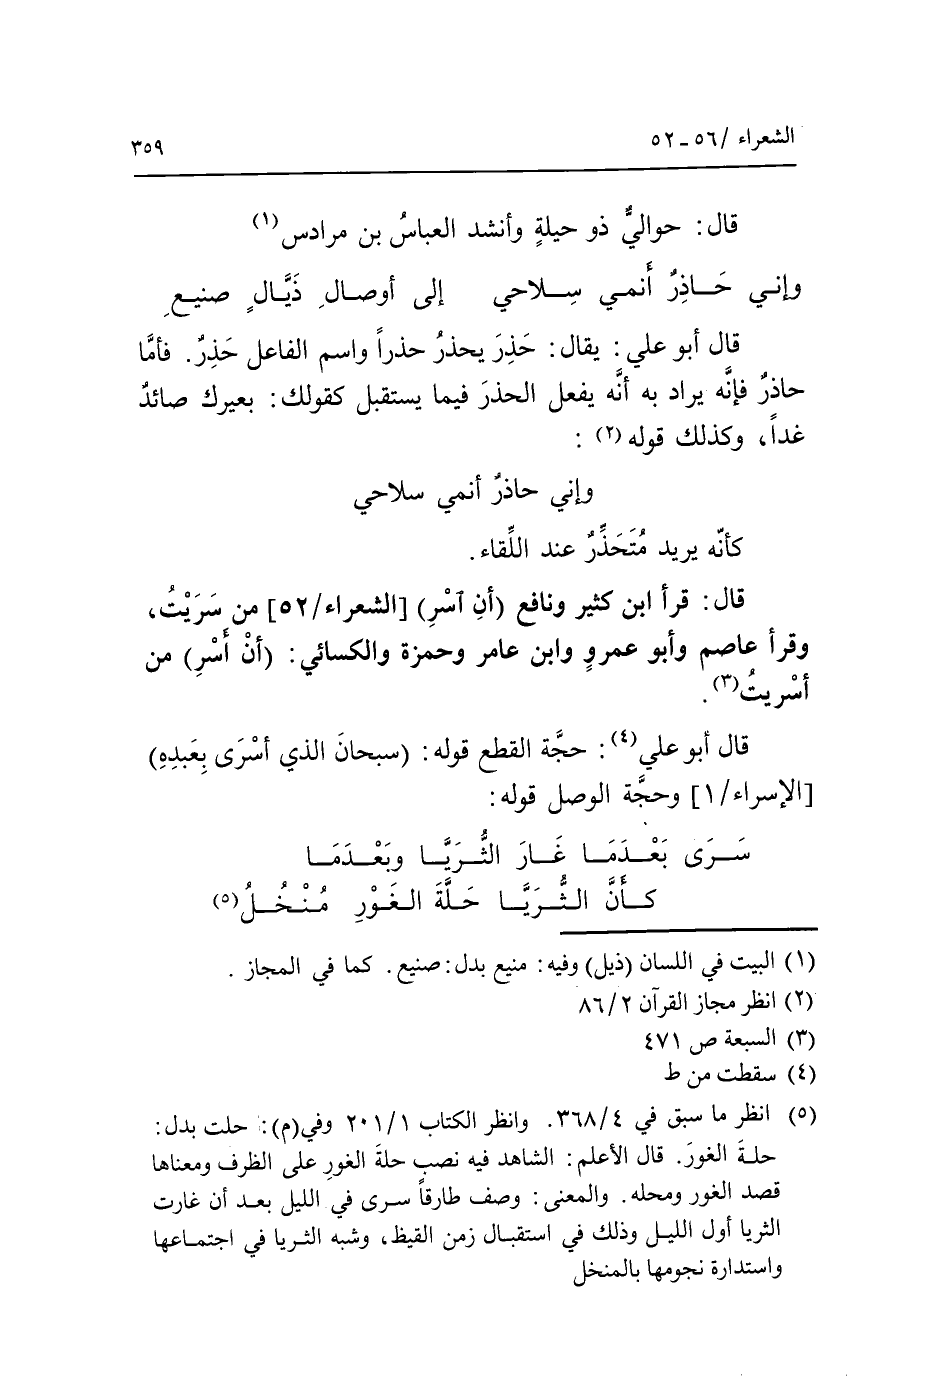 الشعراء /٥٦ ـ ٥٢
٣٥٩
قال: حواليٌّ ذو حيلةٍ وأنشد العباسُ بن مرادس(١)
وإني حَـاذِرٌ أَنمـي سِـلاحي إلى أوصـالِ ذَيَّـالٍ صنيـعِ
قال أبو علي: يقال: حَذِرَ يحذرُ حذراً واسم الفاعل حَذِرٌ. فأمَّا
حاذرٌ فإنَّه يراد به أنَّه يفعل الحذرَ فيما يستقبل كقولك: بعيرك صائدٌ
غداً، وكذلك قوله(٢) :
وإني حاذرٌ أنمي سلاحي
كأنّه يريد مُتَحَذِّرٌ عند اللِّقاء.
قال: قرأ ابن كثير ونافع (أنِ ٱسْرِ) [الشعراء/٥٢] من سَرَيْتُ،
وقرأ عاصم وأبو عمروٍ وابن عامر وحمزة والكسائي: (أنْ أَسْرِ) من
أسْريتُ(٣).
قال أبو علي(٤): حجَّة القطع قوله: (سبحانَ الذي أسْرَى بِعَبدِهِ)
[الإسراء/١] وحجَّة الوصل قوله:
سَـرَى بَعْـدَمَـا غَـارَ الثُّـرَيَّـا وبَعْـدَمَـا
كـأَنَّ الـثُّـرَيَّـا حَـلَّةَ الـغَـوْرِ مُـنْـخُـلُ(٥)
(١) البيت في اللسان (ذيل) وفيه: منيع بدل: صنيع. كما في المجاز .
(٢) انظر مجاز القرآن ٨٦/٢
(٣) السبعة ص ٤٧١
(٤) سقطت من ط
(٥) انظر ما سبق في ٣٦٨/٤. وانظر الكتاب ٢٠١/١ وفي(م): حلت بدل:
حلـة الغورَ. قال الأعلم: الشاهد فيه نصب حلةَ الغورِ على الظرف ومعناها
قصد الغور ومحله. والمعنى: وصف طارقاً سـرى في الليل بعـد أن غارت
الثريا أول الليـل وذلك في استقبـال زمن القيظ، وشبه الثـريا في اجتمـاعها
واستدارة نجومها بالمنخل